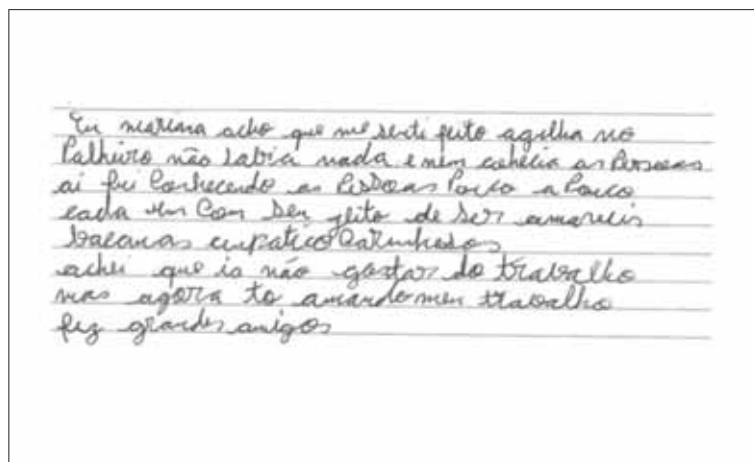 Eu mariana acho que me senti feito agulha no
Palheiro não sabia nada e nem cohecia as Pessoas
ai fui Conhecendo as Pessoas Pouco a Pouco
cada um Com seu jeito de ser amaveis
bacanas cinpatico Carinhosos
achei que ia não gostar do trabalho
mas agora to amando meu trabalho
fez grandes amigos